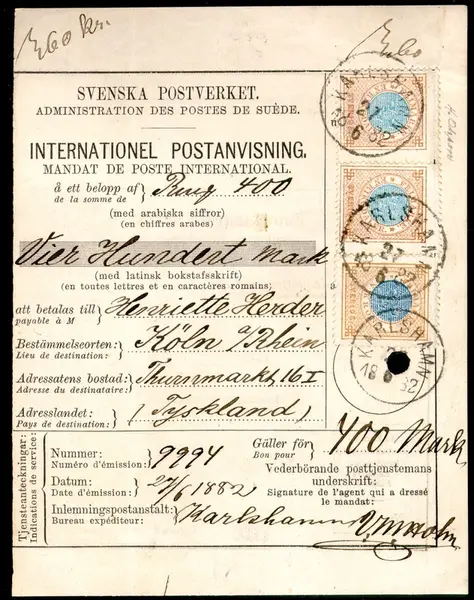 360 kr.
360
KARLSHAMN
27
6
82
SVENSKA POSTVERKET.
ADMINISTRATION DES POSTES DE SUÈDE.
INTERNATIONEL POSTANVISNING.
MANDAT DE POSTE INTERNATIONAL.
å ett belopp af
de la somme de
400
(med arabiska siffror)
(en chiffres arabes)
KARLSHAMN
27
6
Vier Hundert Mark
(med latinsk bokstafsskrift)
(en toutes lettres et en caractères romains)
att betalas till
payable à M
Henriette Herder
KARLSHAMN
18 82
Bestämmelseorten:
Lieu de destination:
Köln a/Rhein
Adressatens bostad:
Adresse du destinataire:
Thurnmarkt 16 I
Adresslandet:
Pays de destination:
(Tyskland)
Tjensteanteckningar:
Indications de service:
Nummer:
Numéro d'émission:
9994
Gäller för
Bon pour
400 Mark
Datum:
Date d'émission:
27/6 1882
Vederbörande posttjenstemans
underskrift:
Signature de l'agent qui a dressé
le mandat:
Inlemningspostanstalt:
Bureau expéditeur:
Karlshamn